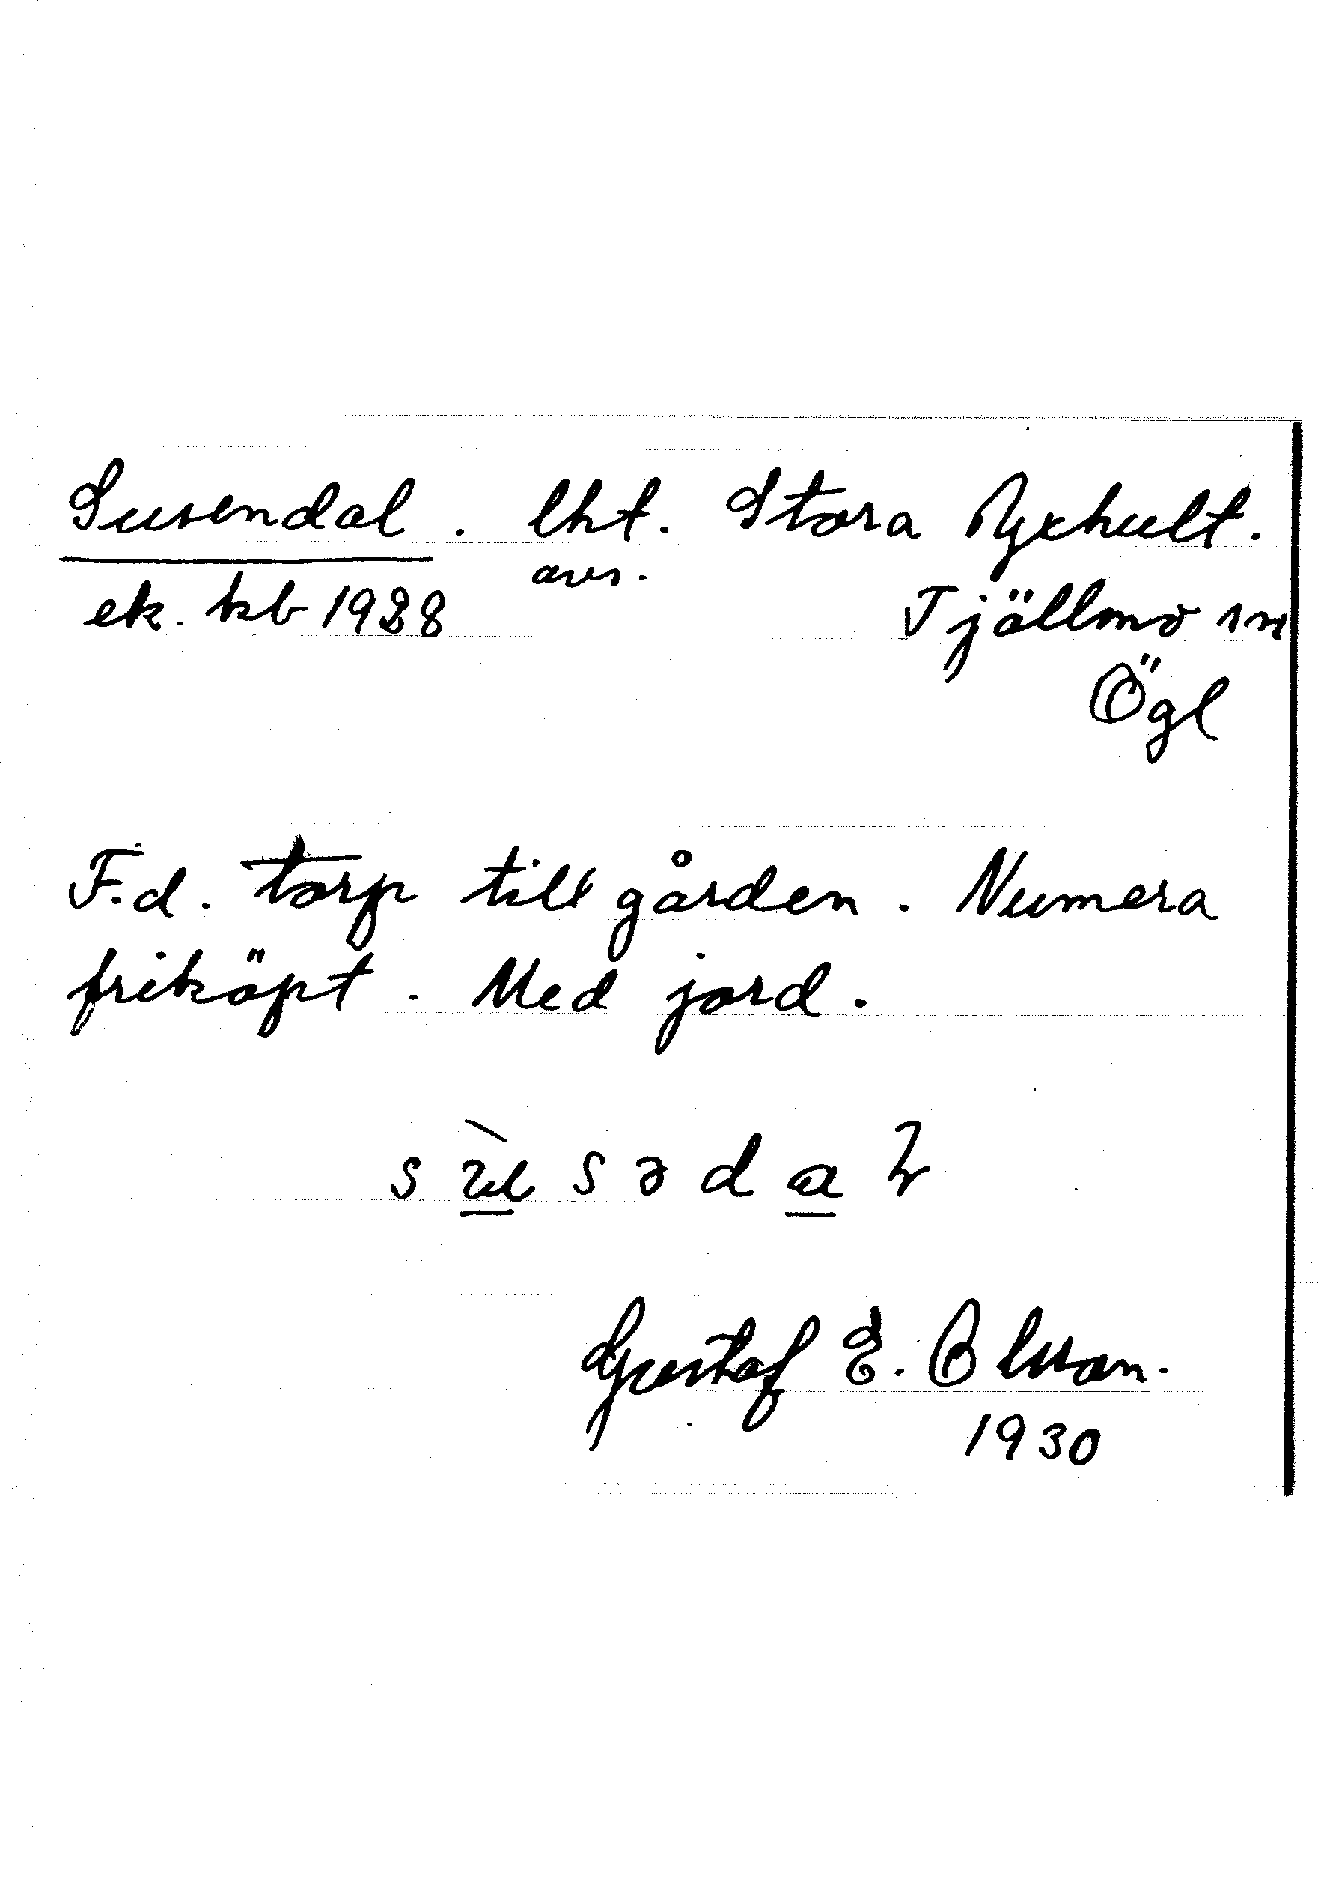 Susendal. lht. Stora Ryxhult.
avs.
ek. kb 1938 Tjällmo sn
Ögl
F.d. torp till gården. Numera
friköpt. Med jord.
Gustaf E. Olsson.
1930